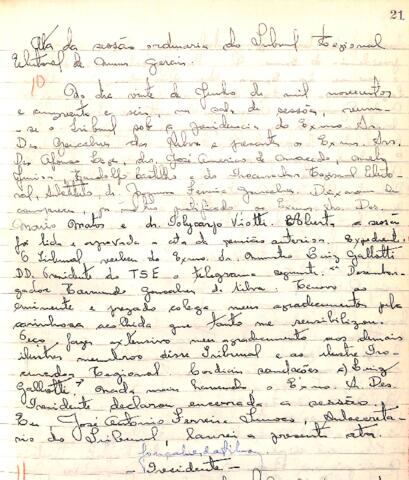 21
Ata da sessão ordinaria do Tribunal Regional
Eleitoral de Minas Gerais.
Do dia vinte de Junho de mil novecentos
e cincoenta e seis, na sala de sessão, reuniu
-se o Tribunal sob a presidencia do Exmo. Sr.
Des. Gonçalves da Silva e presente os Exmos. Srs.
Des. Afonso Lage, drs. José Americo de Macedo,
e do Procurador Regional Eleito-
ral, substituto, dr. Deixaram de
comparecer, por motivo justificado os Exmos. Srs. Des.
Mario Matos e dr. Polycarpo Viotti. Aberta a sessão
foi lida e aprovada a ata da reunião anterior. Expediente.
O Tribunal recebeu do Exmo. Sr. Ministro Luiz Gallotti
DD. Presidente do TSE o telegrama seguinte: "Desembar-
gador Raimundo Gonçalves da Silva. Renovo ao
eminente e prezado colega meus agradecimentos pela
carinhosa acolhida que tanto me sensibilizou.
Peço fazer extensivo meu agradecimento aos demais
ilustres membros desse Tribunal e ao ilustre Pro-
curador Regional. Cordiais saudações a) Luiz
Gallotti". Nada mais havendo, o Exmo. Sr. Des.
Presidente declarou encerrada a sessão.
Eu José Antonio Ferreira Subsecreta-
rio do Tribunal, lavrei a presente ata.
Gonçalves da Silva
- Presidente -